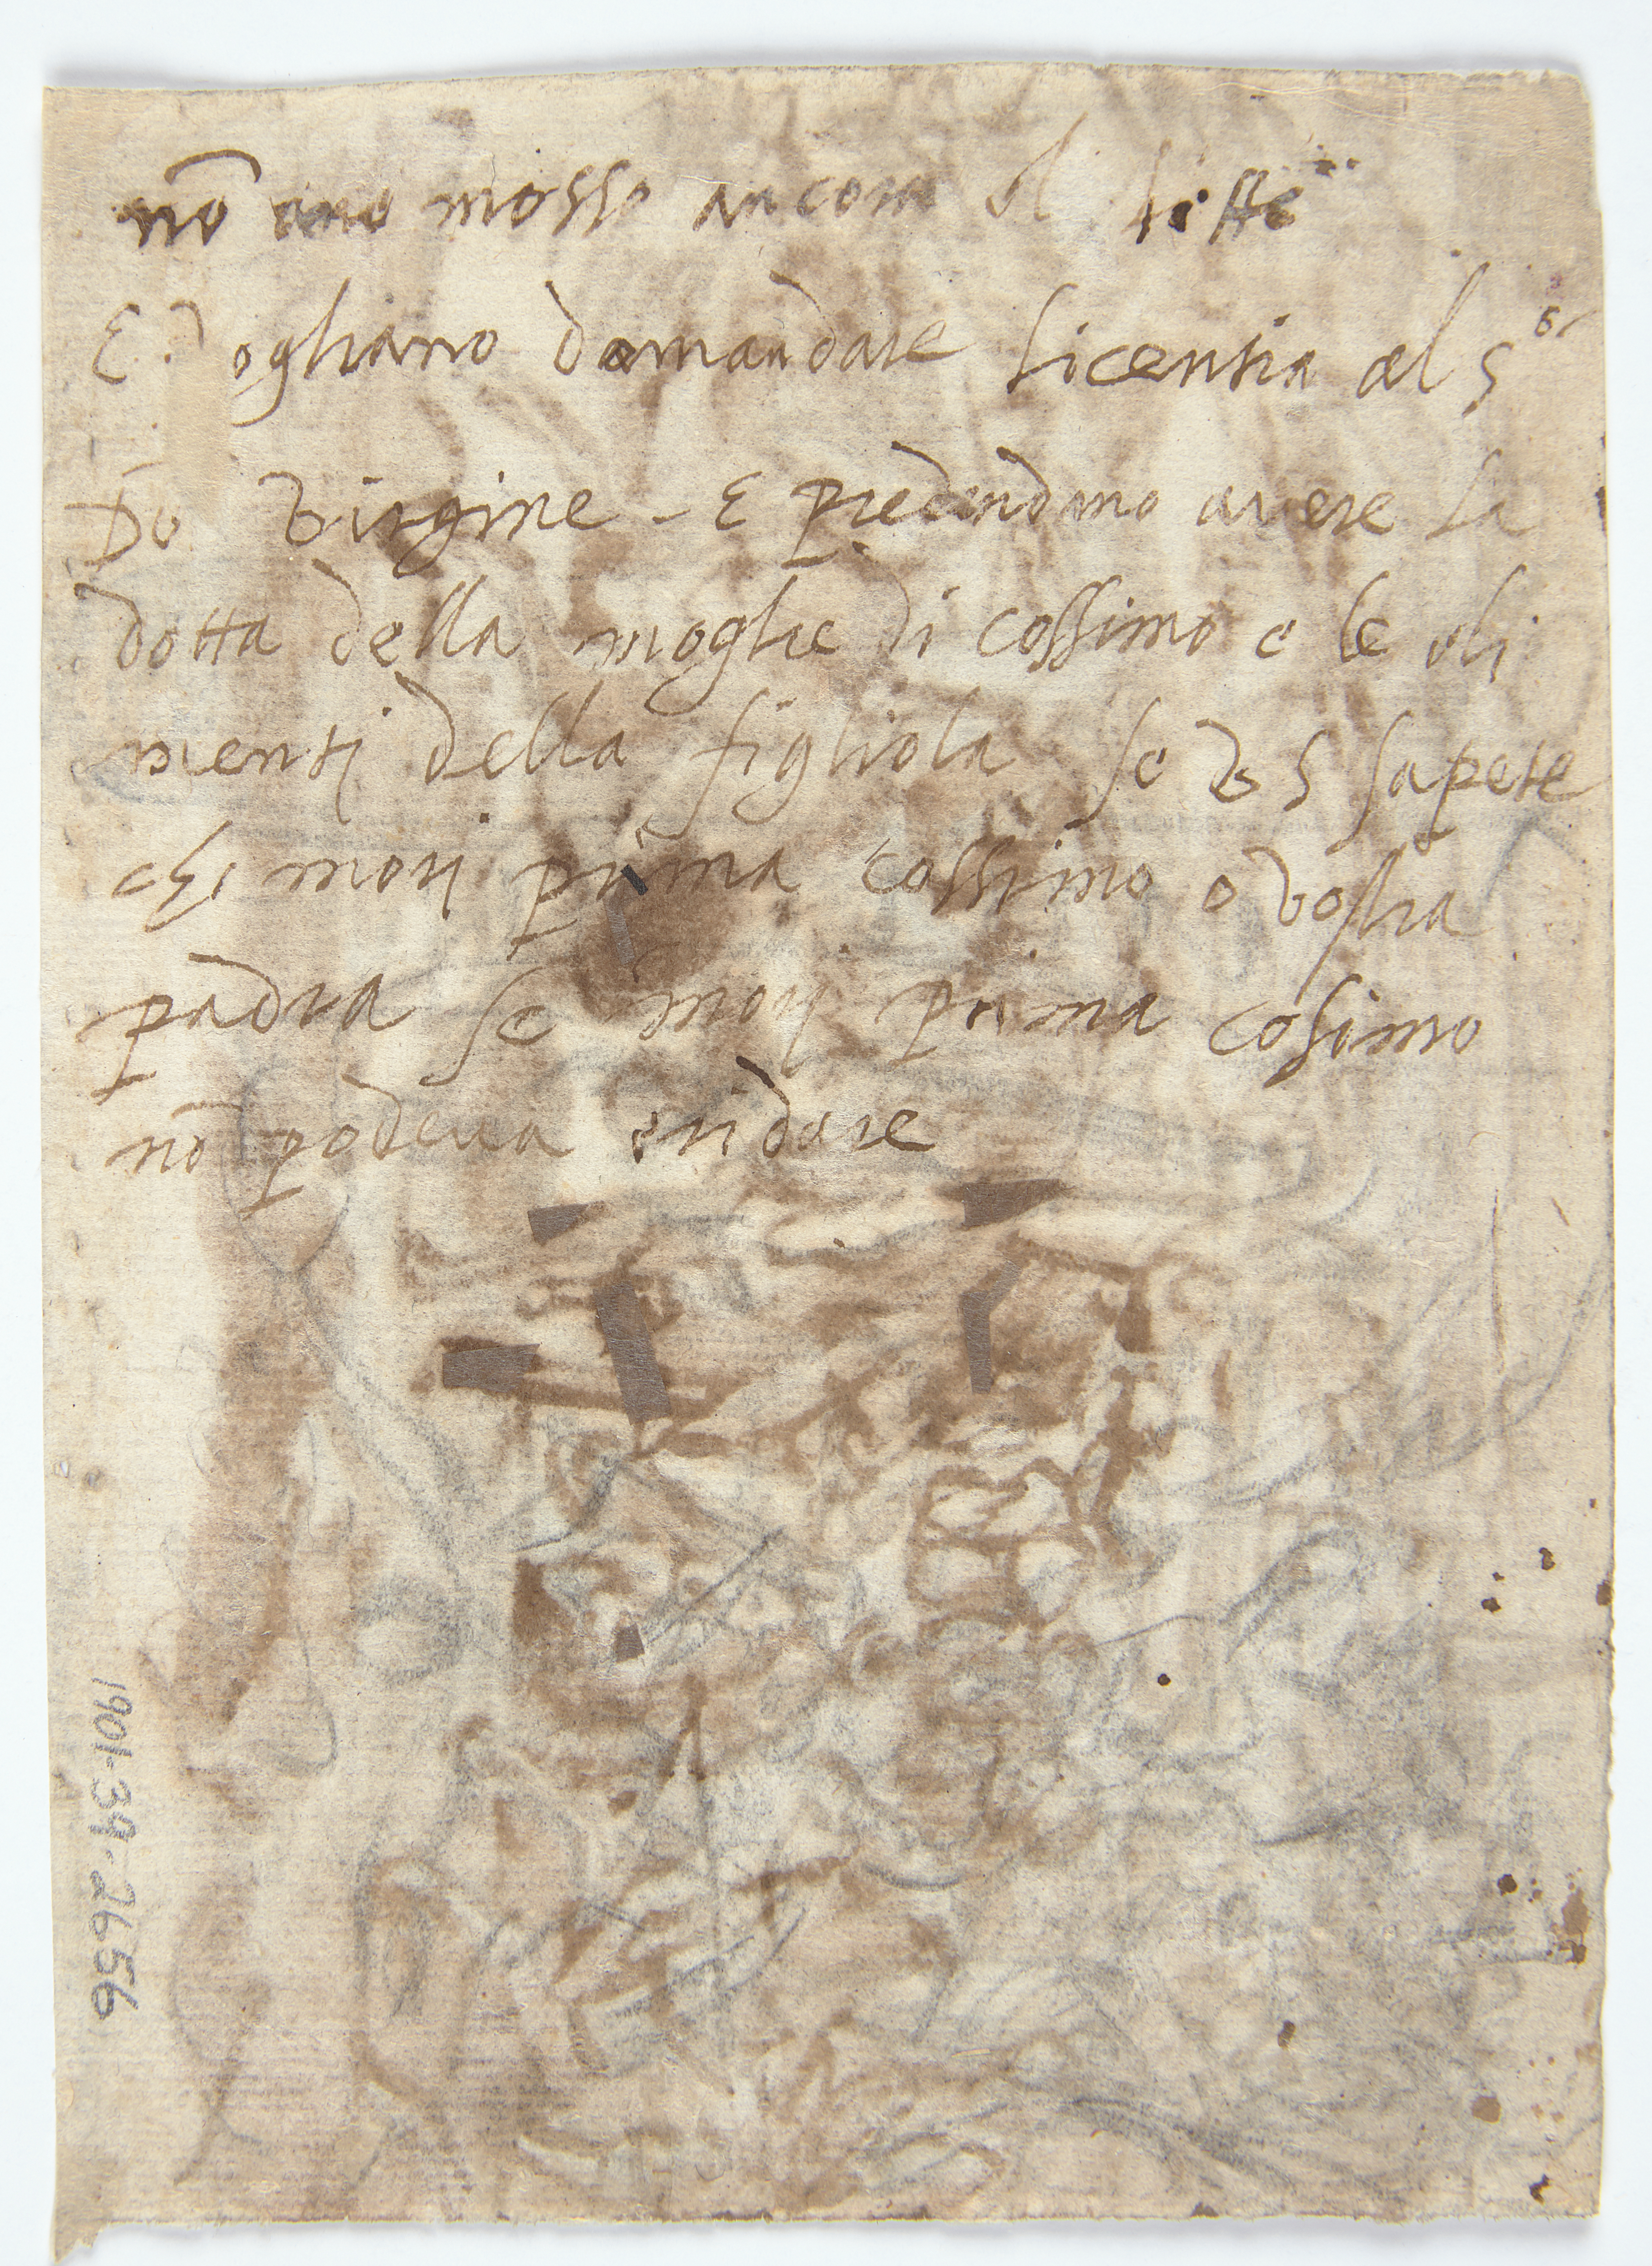 nō ano mosso ancora il litte
E vogliano domandare licentia al Sor
Do Virgine - E predendano avere la
dotta della moglie di cossimo e le ali
menti della figliola se V S sapete
chi mori prima cossimo o vostra
padra se mori prima cosimo
nō podeva eridare
1901-39-2656